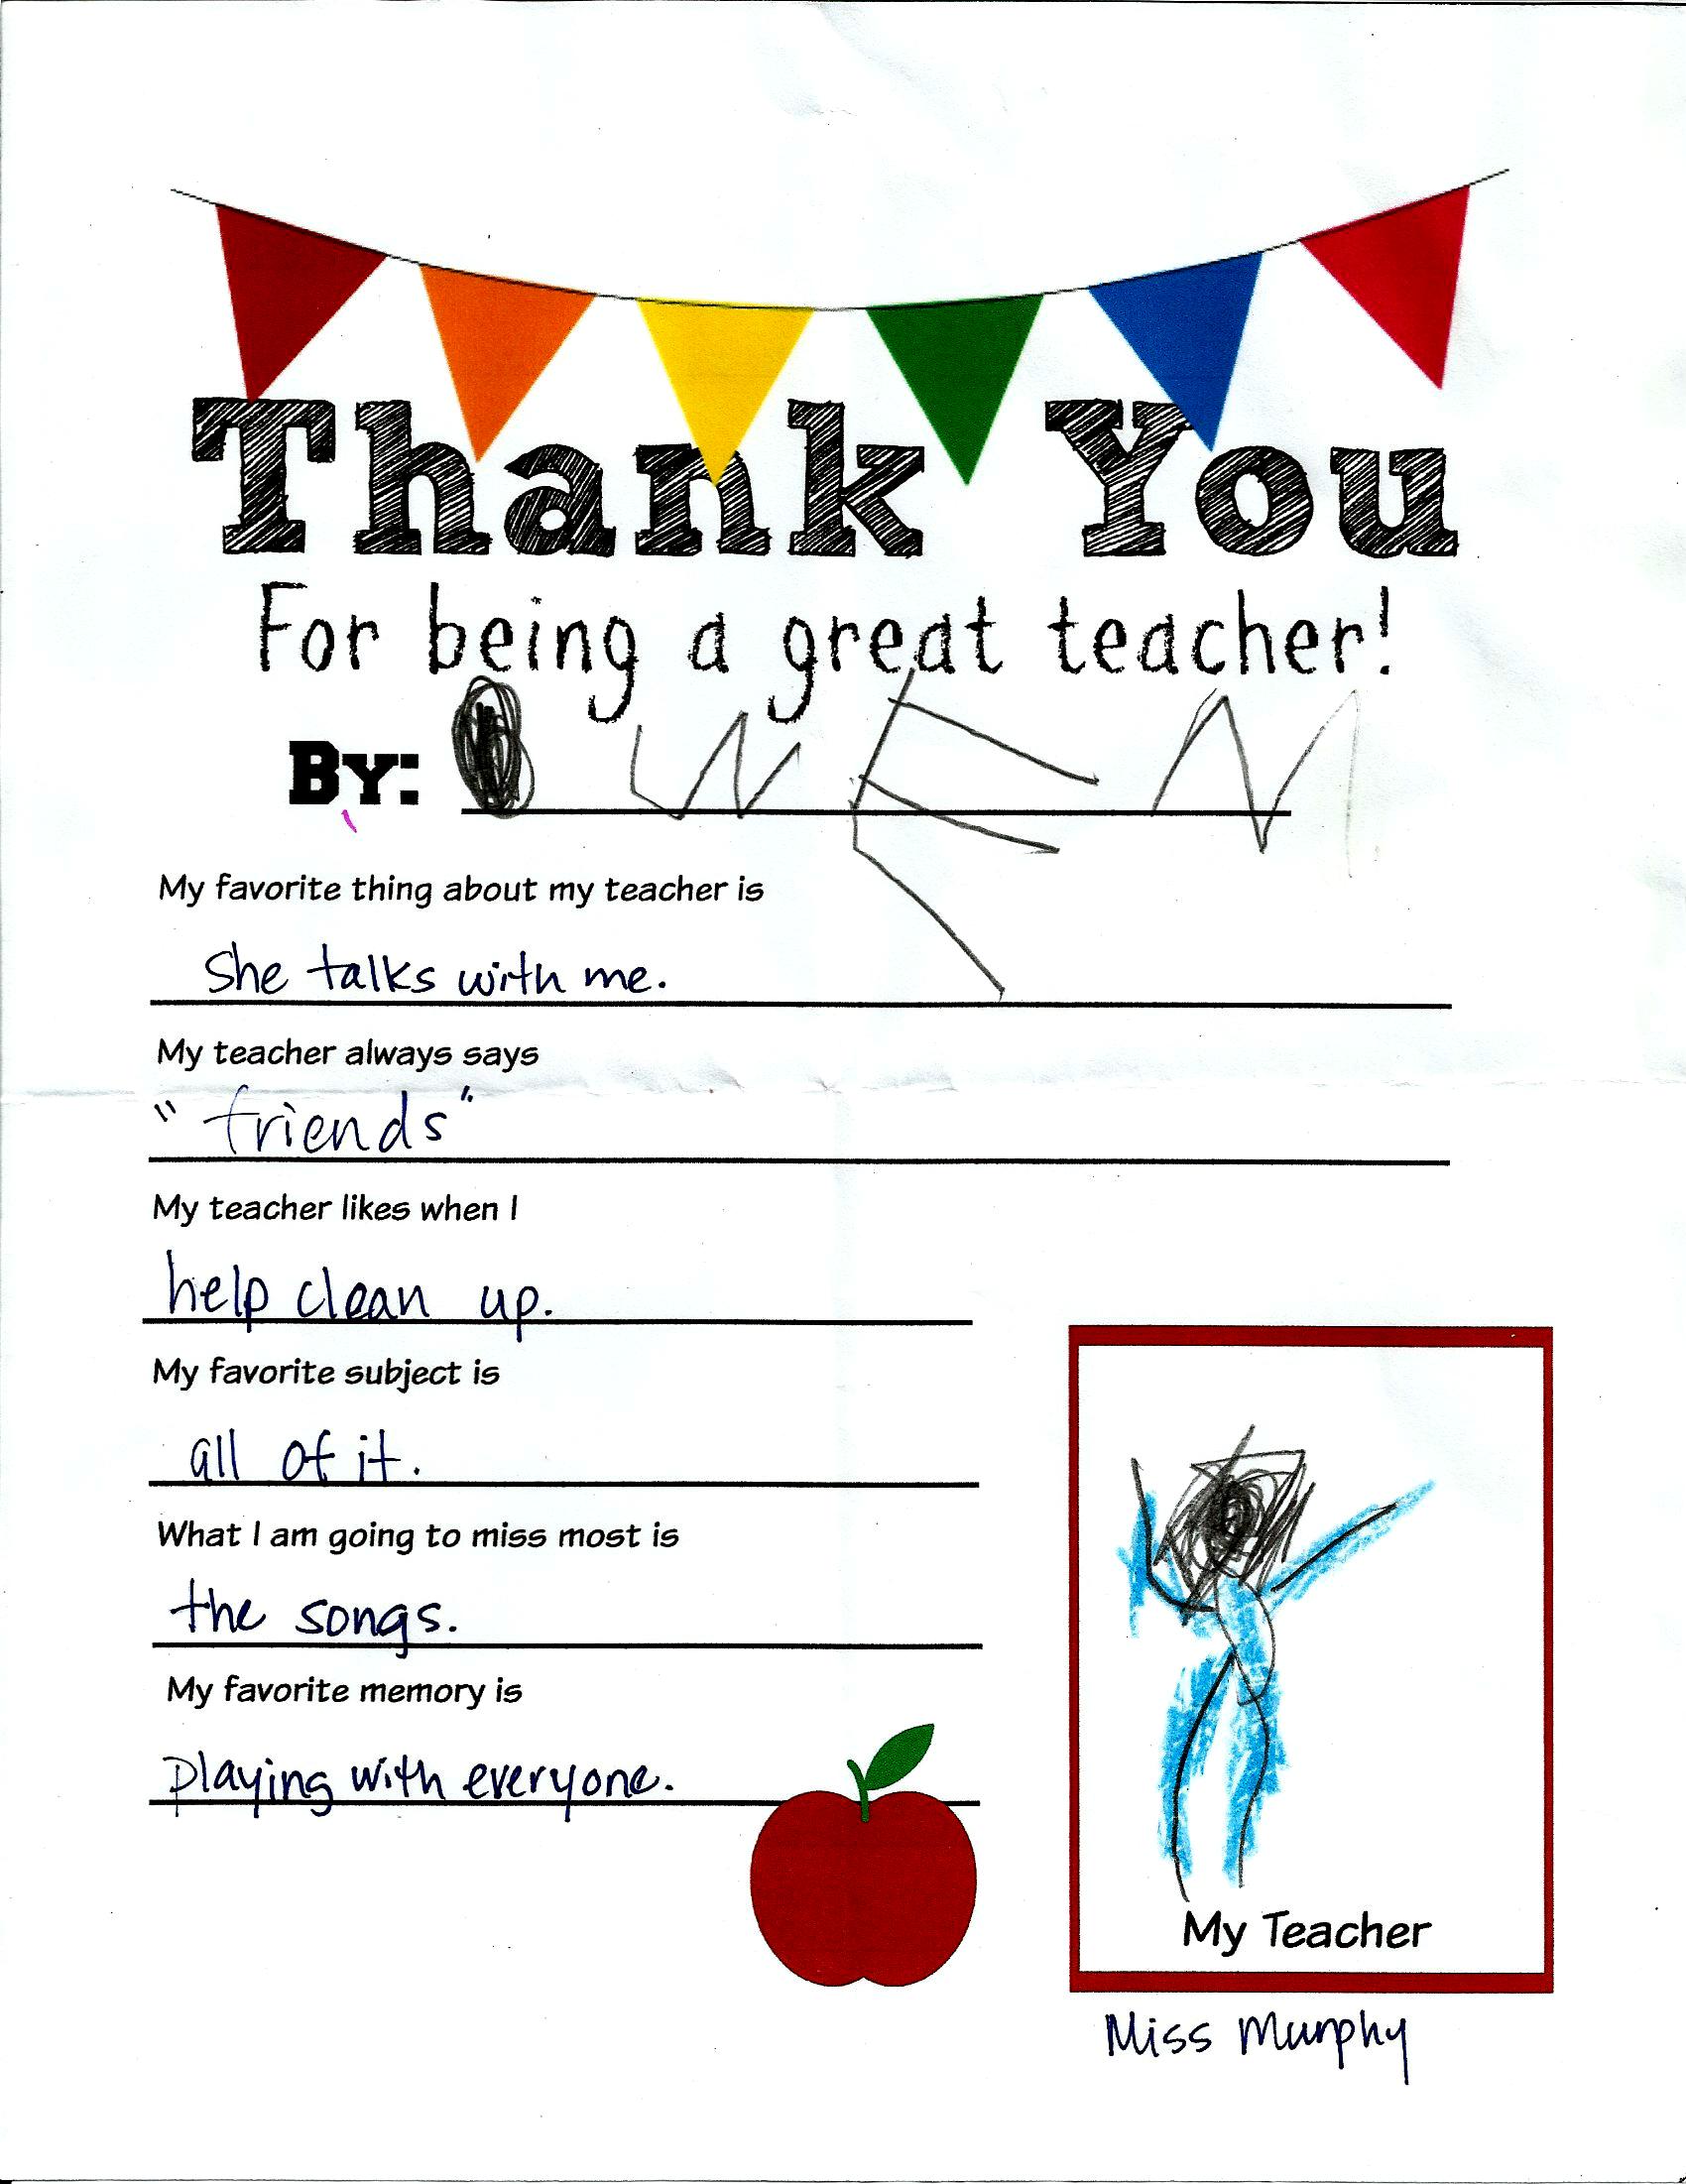 Thank You
For being a great teacher!
By: OWEN
My favorite thing about my teacher is
She talks with me.
My teacher always says
"friends"
My teacher likes when I
help clean up.
My favorite subject is
all of it.
What I am going to miss most is
the songs.
My favorite memory is
playing with everyone.
My Teacher
Miss Murphy